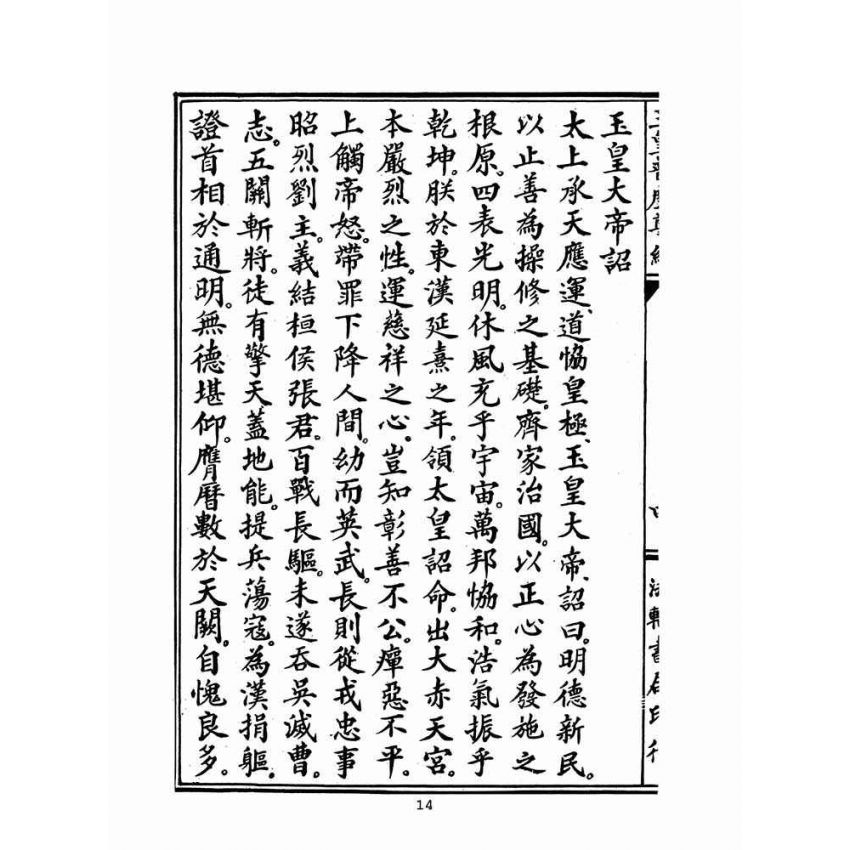 玉皇大帝詔
太上承天應運、道恊皇極、玉皇大帝、詔曰。明德新民。
以止善為操修之基礎。齊家治國。以正心為發施之
根原。四表光明。休風充乎宇宙。萬邦恊和。浩氣振乎
乾坤。朕於東漢延熹之年。領太皇詔命。出大赤天宮。
本嚴烈之性。運慈祥之心。豈知彰善不公。癉惡不平。
上觸帝怒。帶罪下降人間。幼而英武。長則從戎忠事
昭烈劉主。義結桓侯張君。百戰長驅。未遂吞吳滅曹。
志。五關斬將。徒有擎天蓋地能。提兵蕩寇。為漢捐軀。
證首相於通明。無德堪仰。膺曆數於天闕。自愧良多。
14